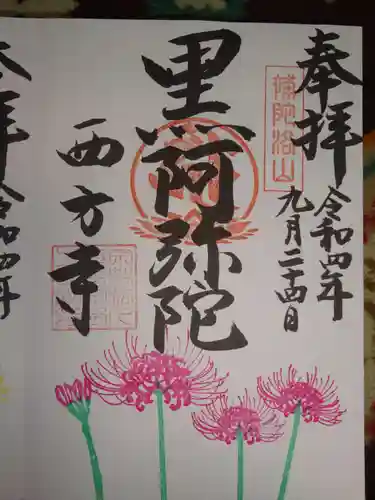 奉拝
令和四年
九月二十四日
補陀洛山
黒阿弥陀
西方寺
令和四年